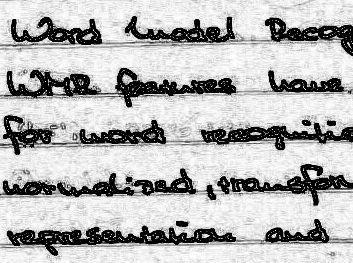 Word Model Recog
WMR features have
for word recognitio
normalized, transfor
representation and